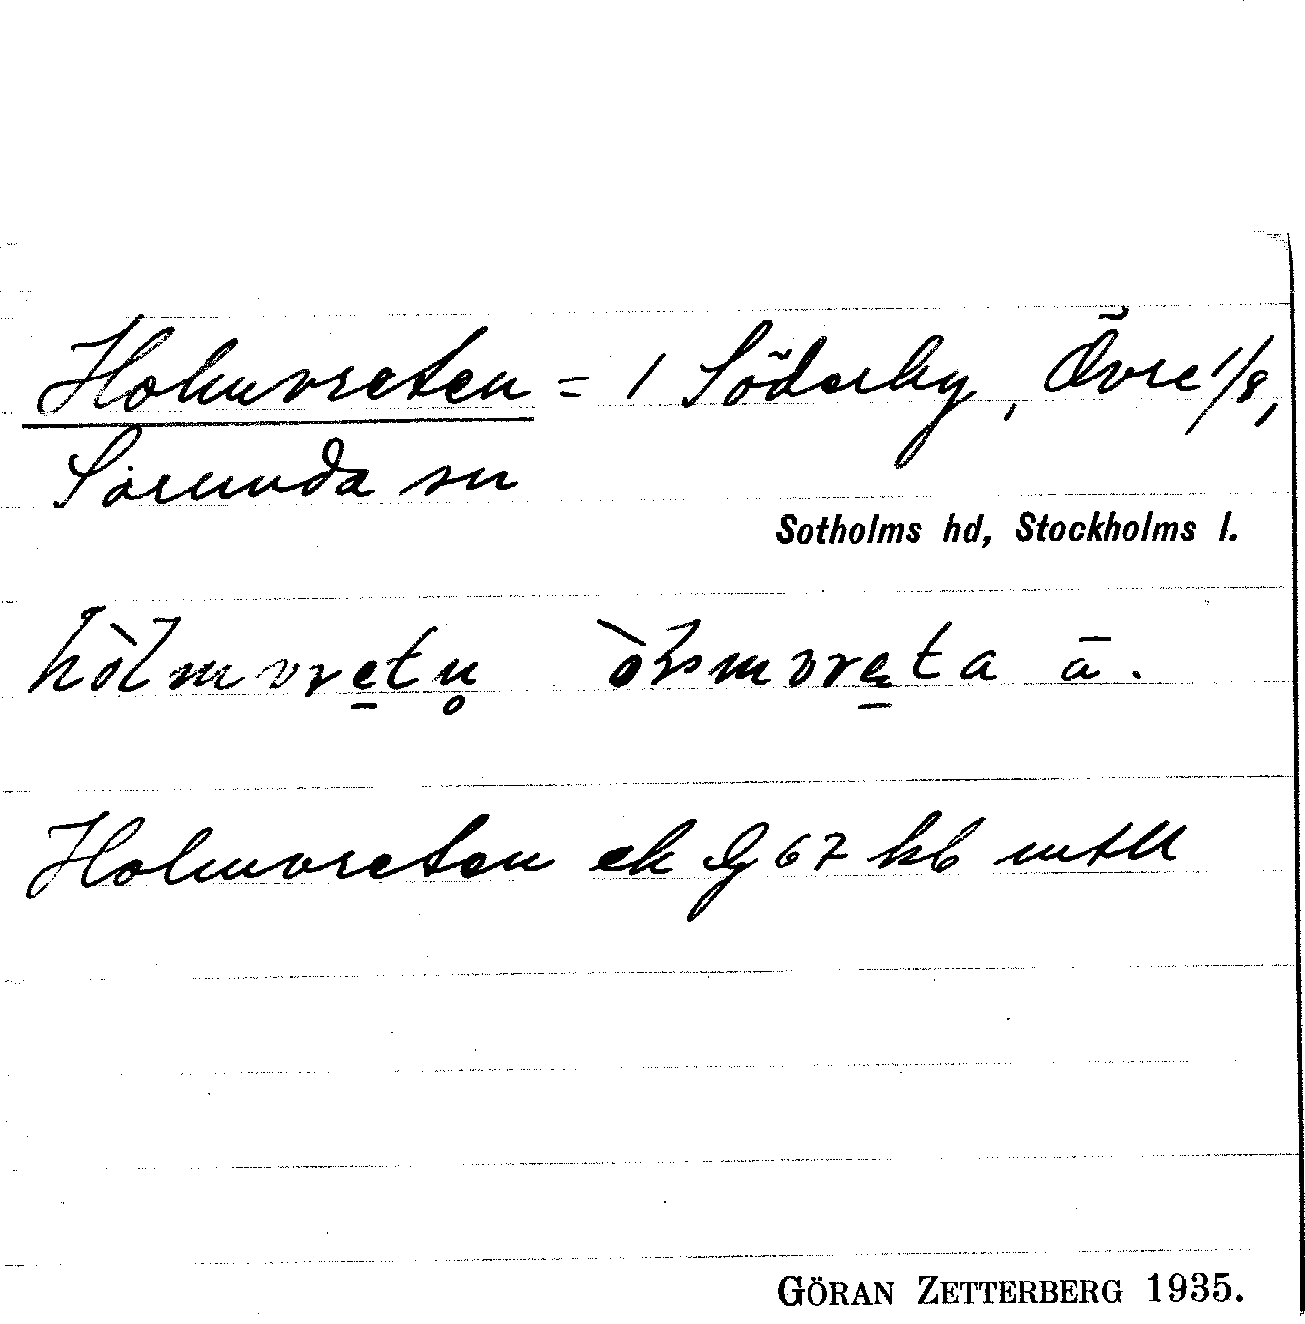 Holmvreten = 1 Söderby, Övre 1/8,
Sorunda sn
Sotholms hd, Stockholms l.
hòlmvretn̥ vreta ā.
Holmvreten ek G 67 kb mtll
GÖRAN ZETTERBERG 1935.